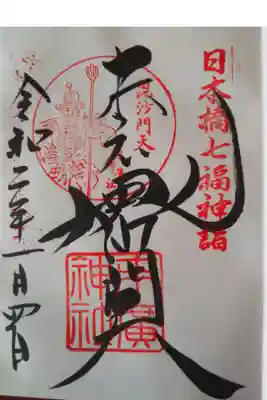 日本橋七福神詣
毘沙門天
毘沙門天
末廣神社
令和二年一月四日